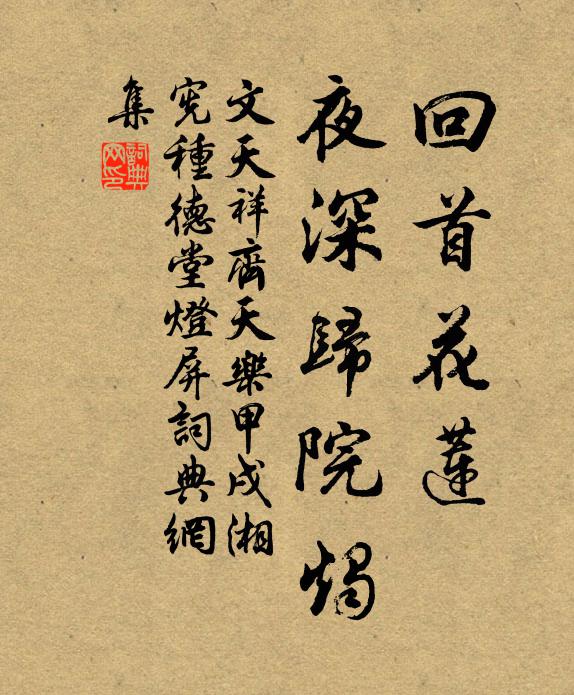 回首花蓮
夜深歸院燭
文天祥齊天樂甲戌湘
宪種德堂燈屏詞典網
集
詞典
网印